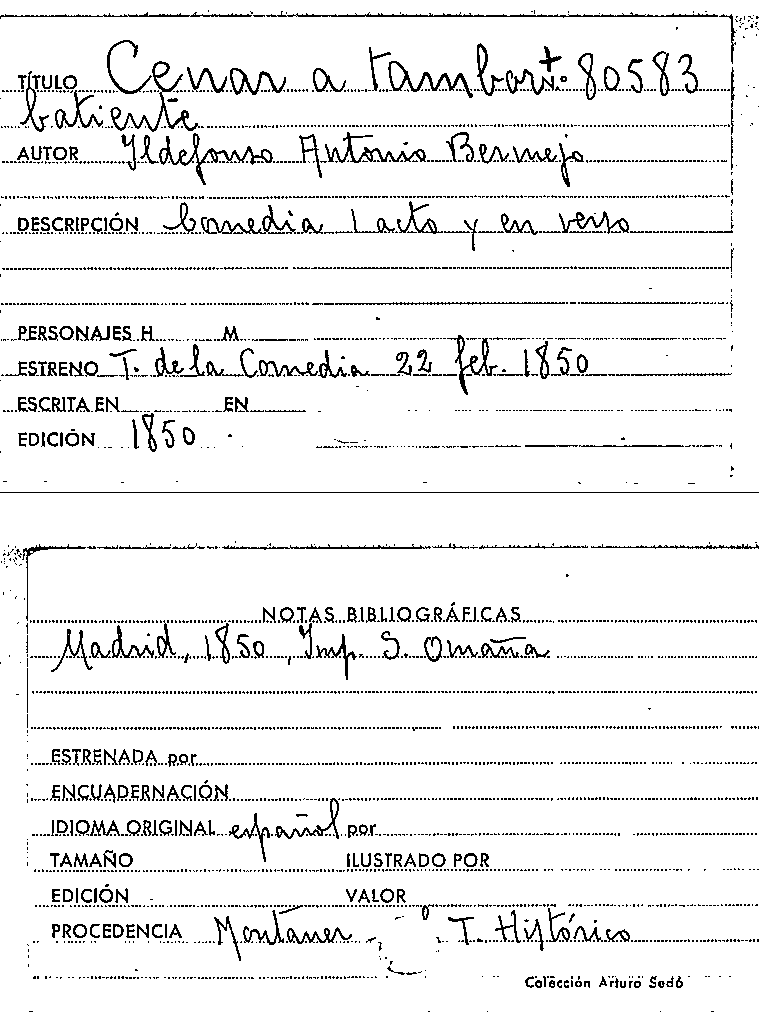 TÍTULO Cenar a tambor +. 80583
batiente
AUTOR Ildefonso Antonio Bermejo
DESCRIPCIÓN Comedia 1 acto y en verso
PERSONAJES H M
ESTRENO T. de la Comedia 22 feb. 1850
ESCRITA EN EN
EDICIÓN 1850
NOTAS BIBLIOGRÁFICAS
Madrid, 1850, Imp. S. Omaña
ESTRENADA por
ENCUADERNACIÓN
IDIOMA ORIGINAL español por
TAMAÑO ILUSTRADO POR
EDICIÓN VALOR
PROCEDENCIA Montaner T. Histórico
Colección Arturo Sedó